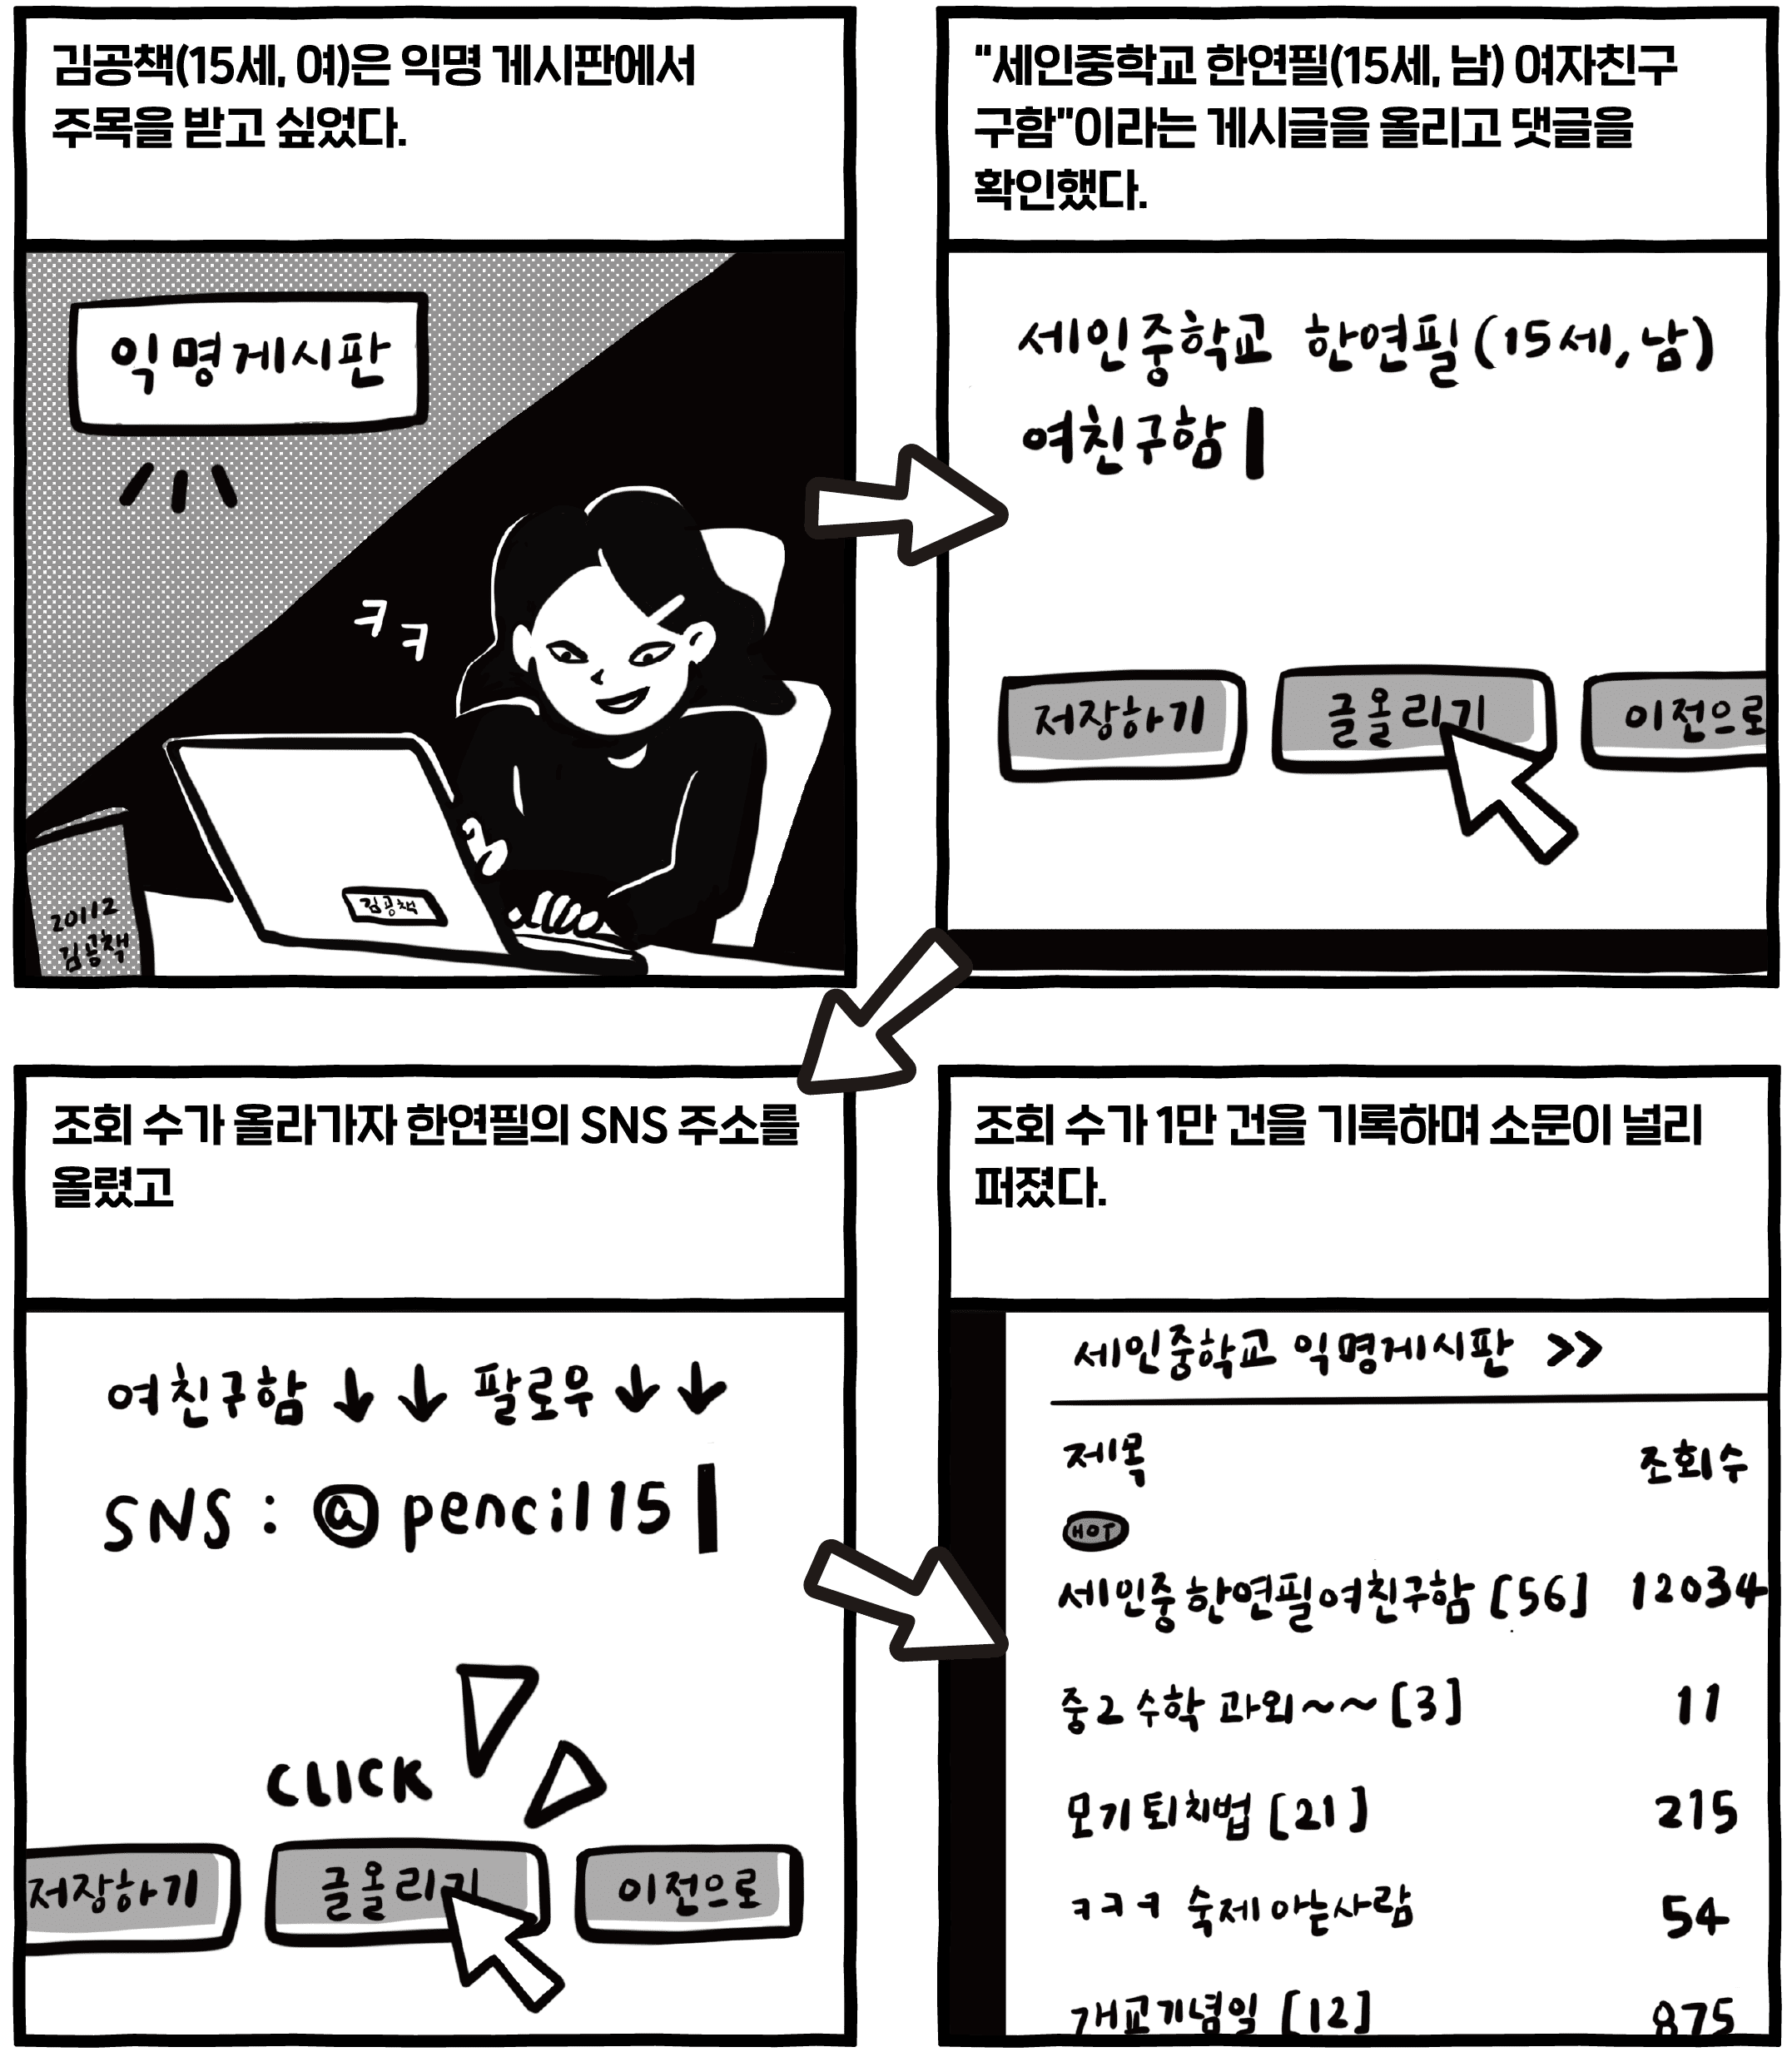 김공책(15세, 여)은 익명 게시판에서
주목을 받고 싶었다.
익명게시판
ㅋㅋ
김공책
20112
김공책
“세인중학교 한연필(15세, 남) 여자친구
구함”이라는 게시글을 올리고 댓글을
확인했다.
세인중학교 한연필(15세, 남)
여친구함
저장하기 글올리기 이전으로
조회 수가 올라가자 한연필의 SNS 주소를
올렸고
여친구함 ↓↓ 팔로우 ↓↓
SNS : @pencil15
CLICK
저장하기 글올리기 이전으로
조회 수가 1만 건을 기록하며 소문이 널리
퍼졌다.
세인중학교 익명게시판 >>
제목 조회수
HOT
세인중 한연필 여친구함 [56] 12034
중2 수학 과외~~ [3] 11
모기 퇴치법 [21] 215
ㅋㅋㅋ 숙제 아는사람 54
개교기념일 [12] 875